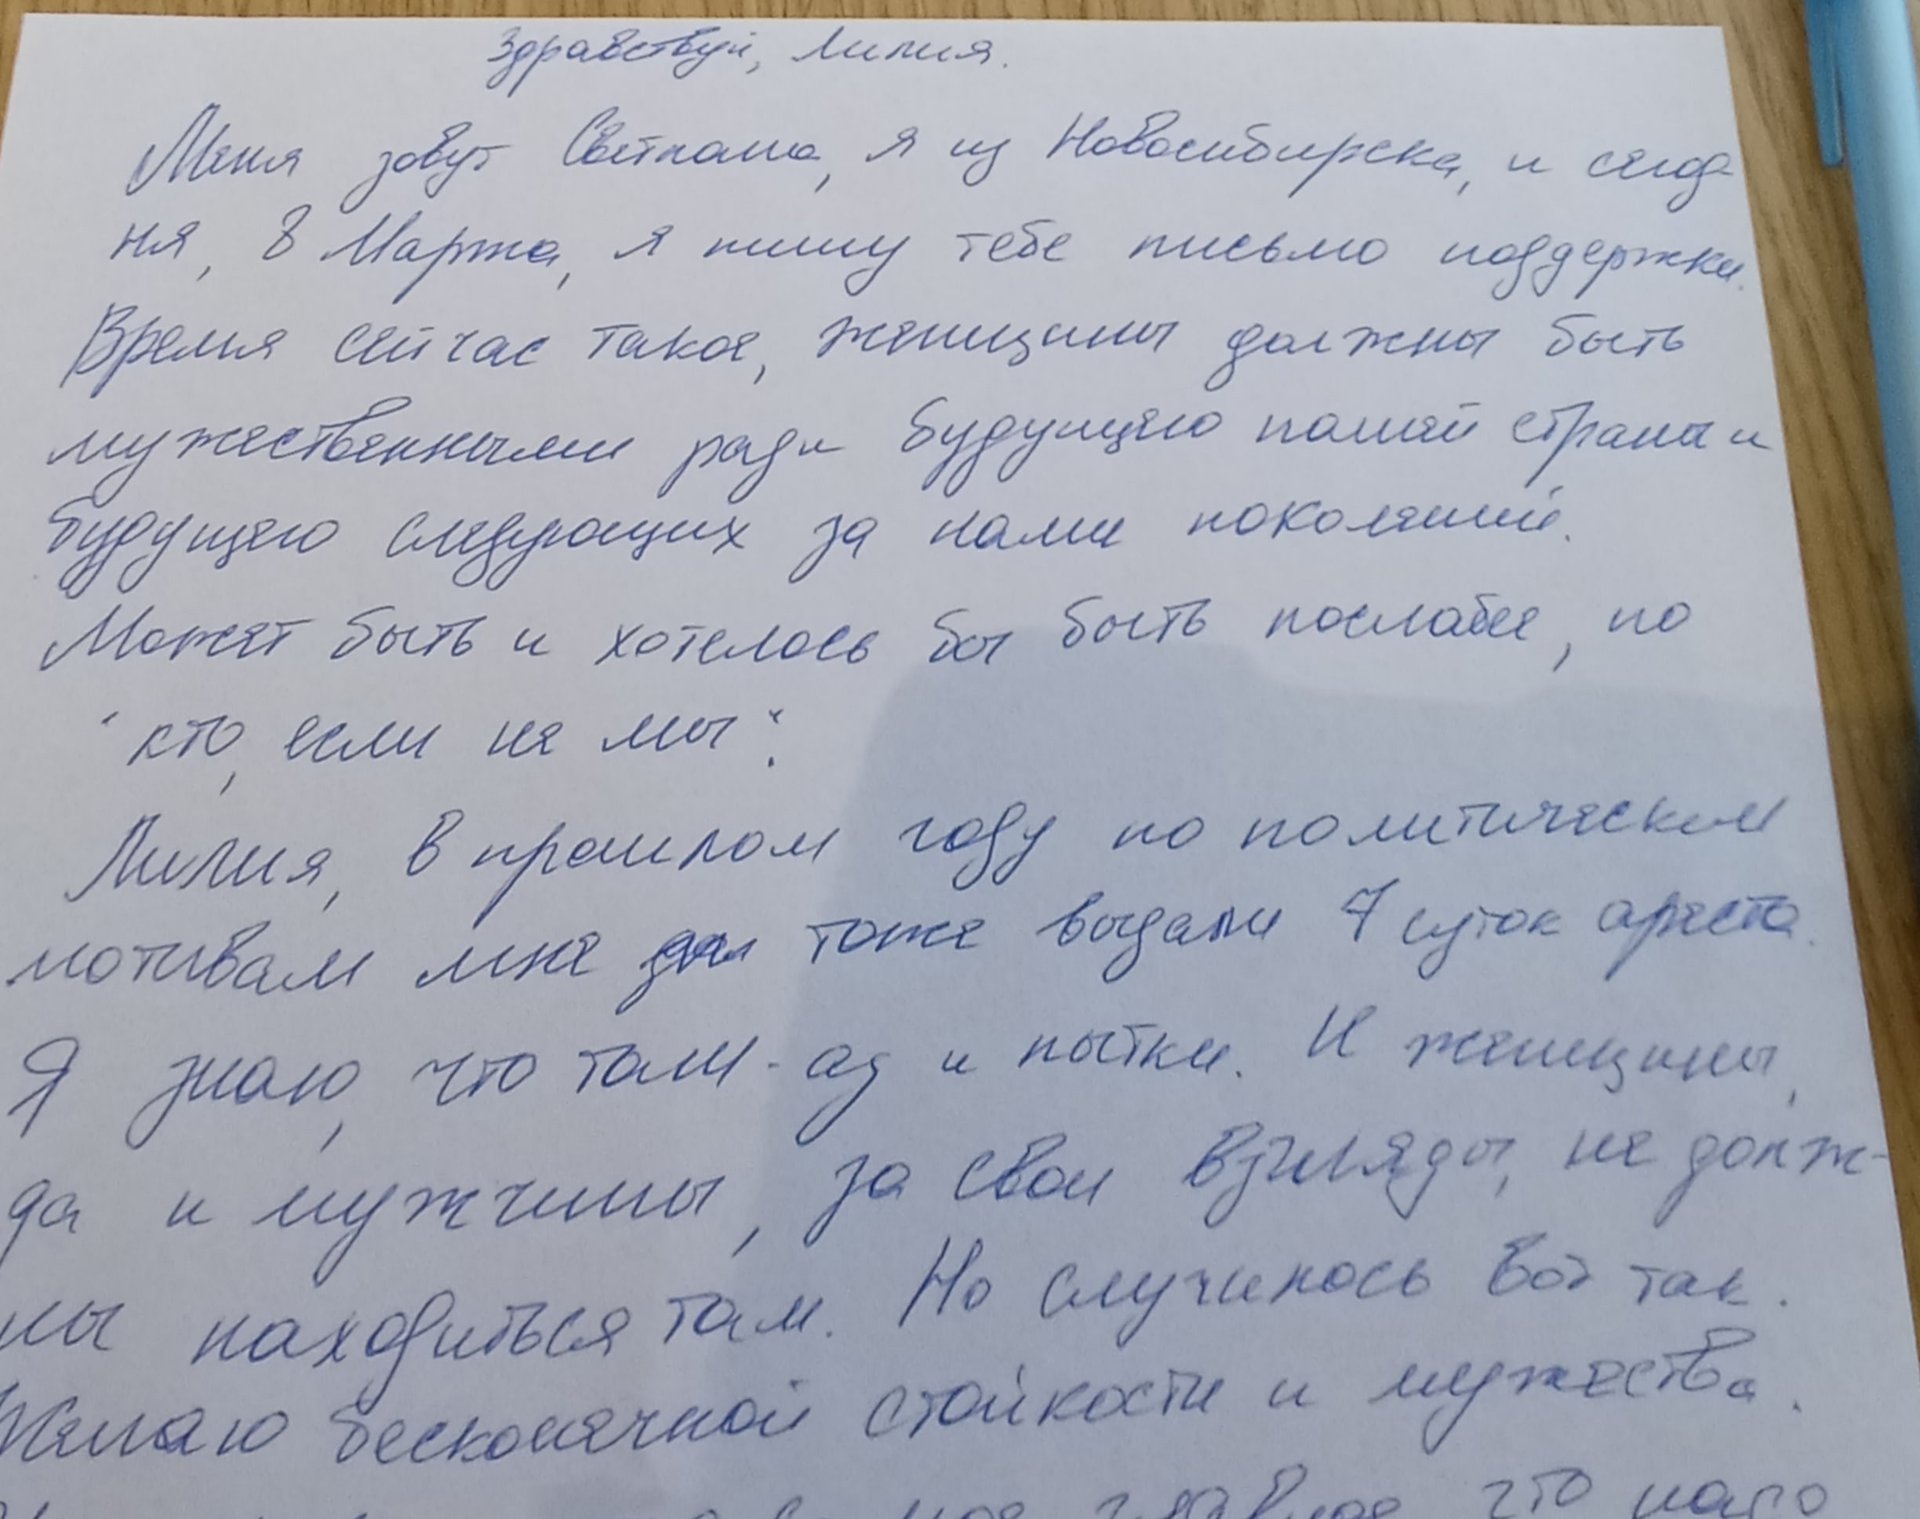 Здравствуй, Лилия.
Меня зовут Светлана, я из Новосибирска, и сегод-
ня, 8 Марта, я пишу тебе письмо поддержки.
Время сейчас такое, женщины должны быть
мужественными ради будущего нашей страны и
будущего следующих за нами поколений.
Может быть и хотелось бы быть послабее, но
"кто, если не мы".
Лилия, в прошлом году по политическим
мотивам мне тоже выдали 7 суток ареста.
Я знаю, что там - ад и пытки. И женщины,
да и мужчины, за свои взгляды, не долж-
ны находиться там. Но случилось вот так.
Желаю бесконечной стойкости и мужества.
главное что надо